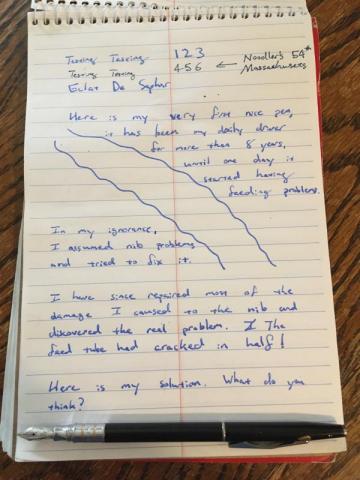 Testing Testing 1 2 3
Testing Testing 4 5 6 ← Noodler's 54th Massachusetts
Eclat De Saphir
Here is my very first nice pen,
it has been my daily driver
for more than 8 years,
until one day it
started having
feeding problems.
In my ignorance,
I assumed nib problems
and tried to fix it.
I have since repaired most of the
damage I caused to the nib and
discovered the real problem. The
feed tube had cracked in half!
Here is my solution. What do you
think?